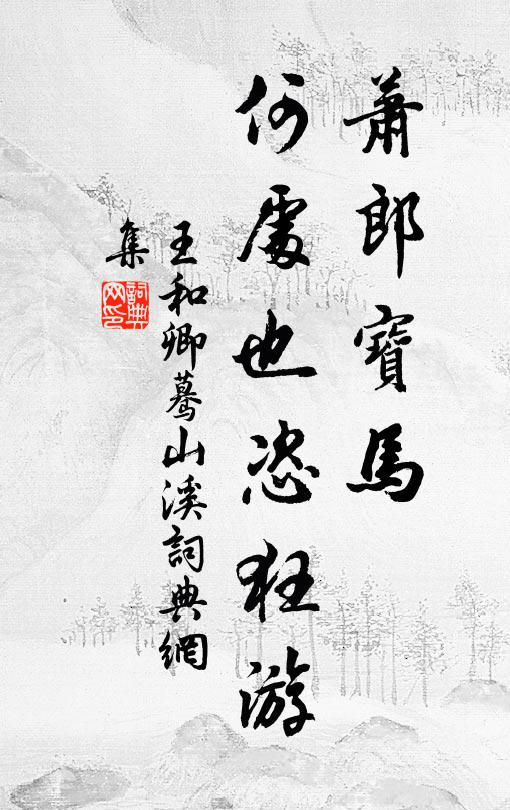 蕭郎寶馬
何處也恣狂游
王和卿驀山溪詞典網
集
詞典网印